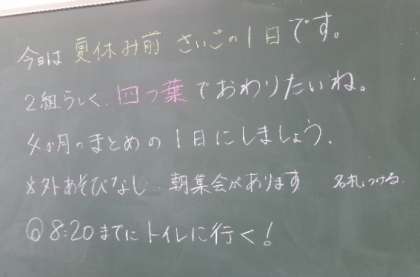 今日は 夏休み前 さいごの1日です。
2組らしく、四つ葉でおわりたいね。
4か月のまとめの1日にしましょう。
※外あそびなし 朝集会があります 名札つける
◎8:20までにトイレに行く!